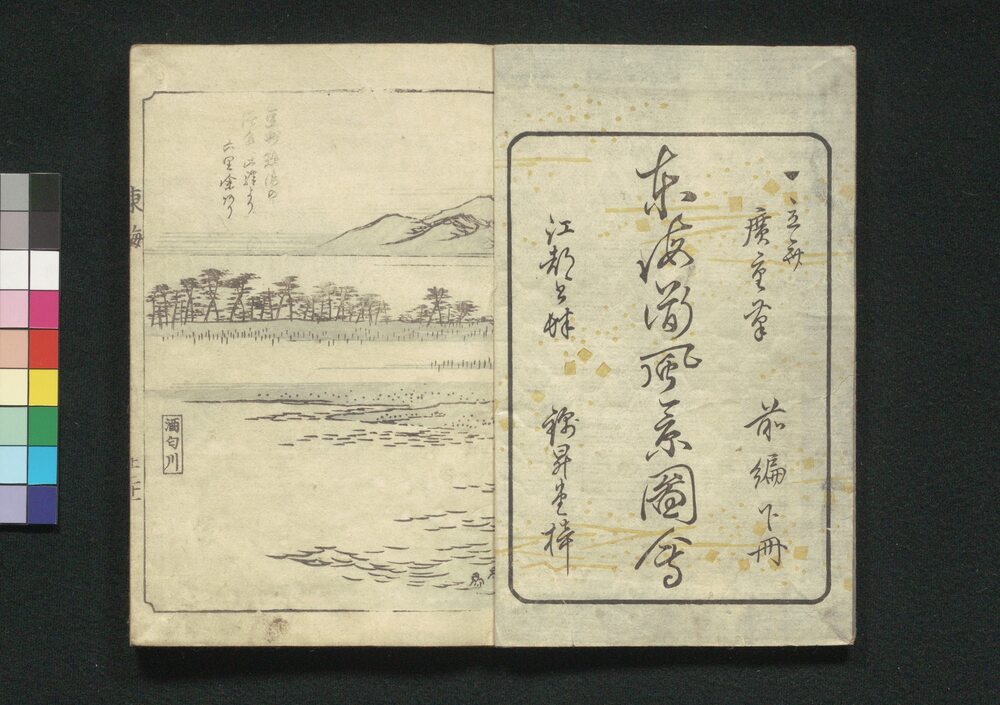 一立斎
廣重筆
前編下冊
東海道風景圖會
江都書肆
錦昇堂梓
六里余アリ
酒匂川
東海